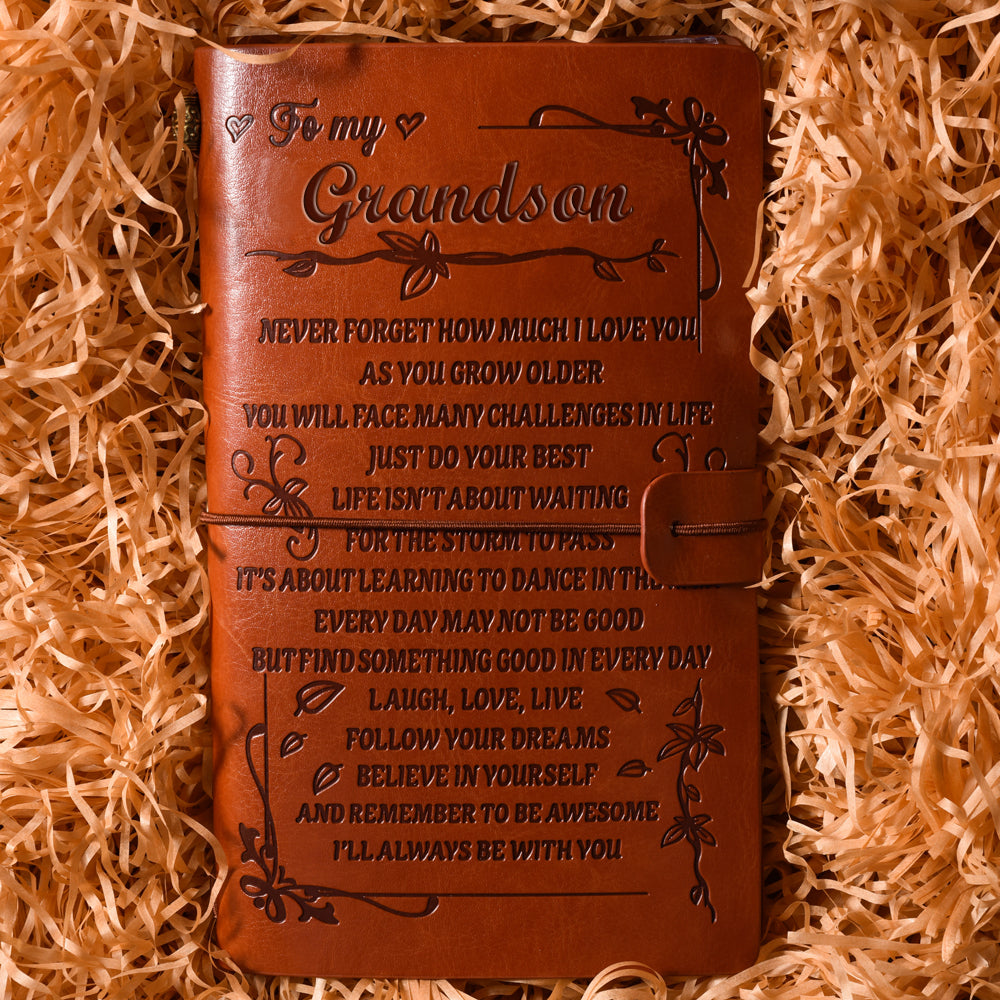 To my
Grandson
NEVER FORGET HOW MUCH I LOVE YOU
AS YOU GROW OLDER
YOU WILL FACE MANY CHALLENGES IN LIFE
JUST DO YOUR BEST
LIFE ISN'T ABOUT WAITING
FOR THE STORM TO PASS
IT'S ABOUT LEARNING TO DANCE IN THE
EVERY DAY MAY NOT BE GOOD
BUT FIND SOMETHING GOOD IN EVERY DAY
LAUGH, LOVE, LIVE
FOLLOW YOUR DREAMS
BELIEVE IN YOURSELF
AND REMEMBER TO BE AWESOME
I'LL ALWAYS BE WITH YOU